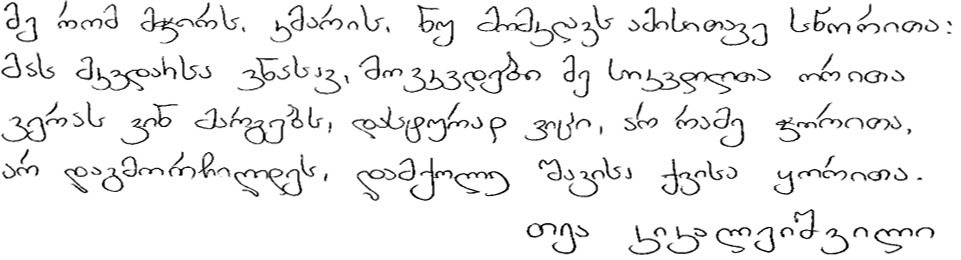 მე რომ მჭირს, კმარის, ნუ მომკლავს ამისითავე სწორითა:
მას მკვდარსა ვნახავ, მოვკვდები მე სიკვდილითა ორითა
ვერას ვინ მარგებს, დასტურად ვიცი, არ რამე ჭორითა,
არ დაგმორჩილდეს, დამქოლე შავისა ქვისა ყორითა.
თეა კიკალეიშვილი